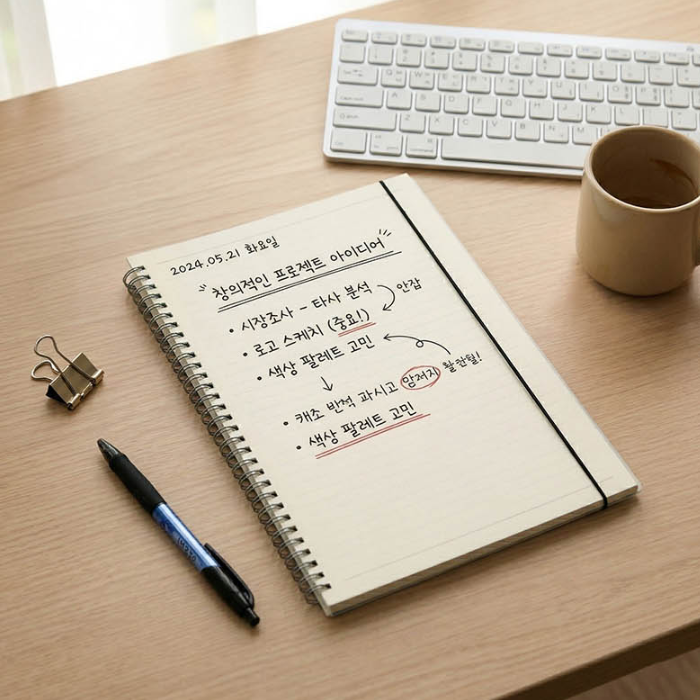 2024.05.21 화요일
"창의적인 프로젝트 아이디어"
• 시장조사 - 타사 분석 안잠
• 로고 스케치 (중요!)
• 색상 팔레트 고민
↓
• 캐조 반적 과시고 맘저지 활칸월!
• 색상 팔레트 고민